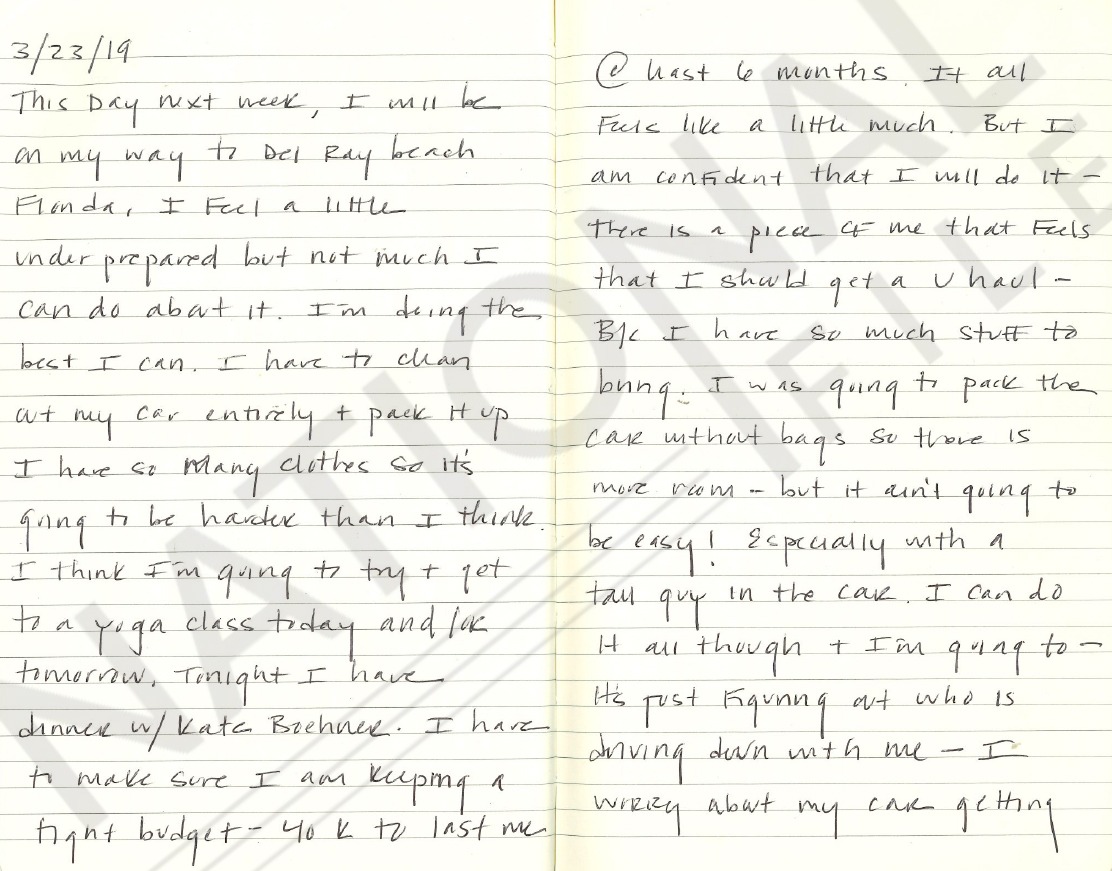 3/23/19
This Day next week, I will be
on my way to Del Ray beach
Florida, I Feel a little
under prepared but not much I
can do about it. I'm doing the
best I can. I have to clean
out my car entirely + pack it up
I have so many clothes so it's
going to be harder than I think.
I think I'm going to try + get
to a yoga class today and/or
tomorrow. Tonight I have
dinner w/ Kate Boehner. I have
to make sure I am keeping a
tight budget - 40 K to last me
@ least 6 months. It all
Feels like a little much. But I
am confident that I will do it -
there is a piece of me that Feels
that I should get a U haul -
B/c I have so much stuff to
bring. I was going to pack the
car without bags so there is
more room - but it ain't going to
be easy! Especially with a
tall guy in the car. I can do
it all though + I'm going to -
It's just Figuring out who is
driving down with me - I
worry about my car getting
NATIONAL
FILE